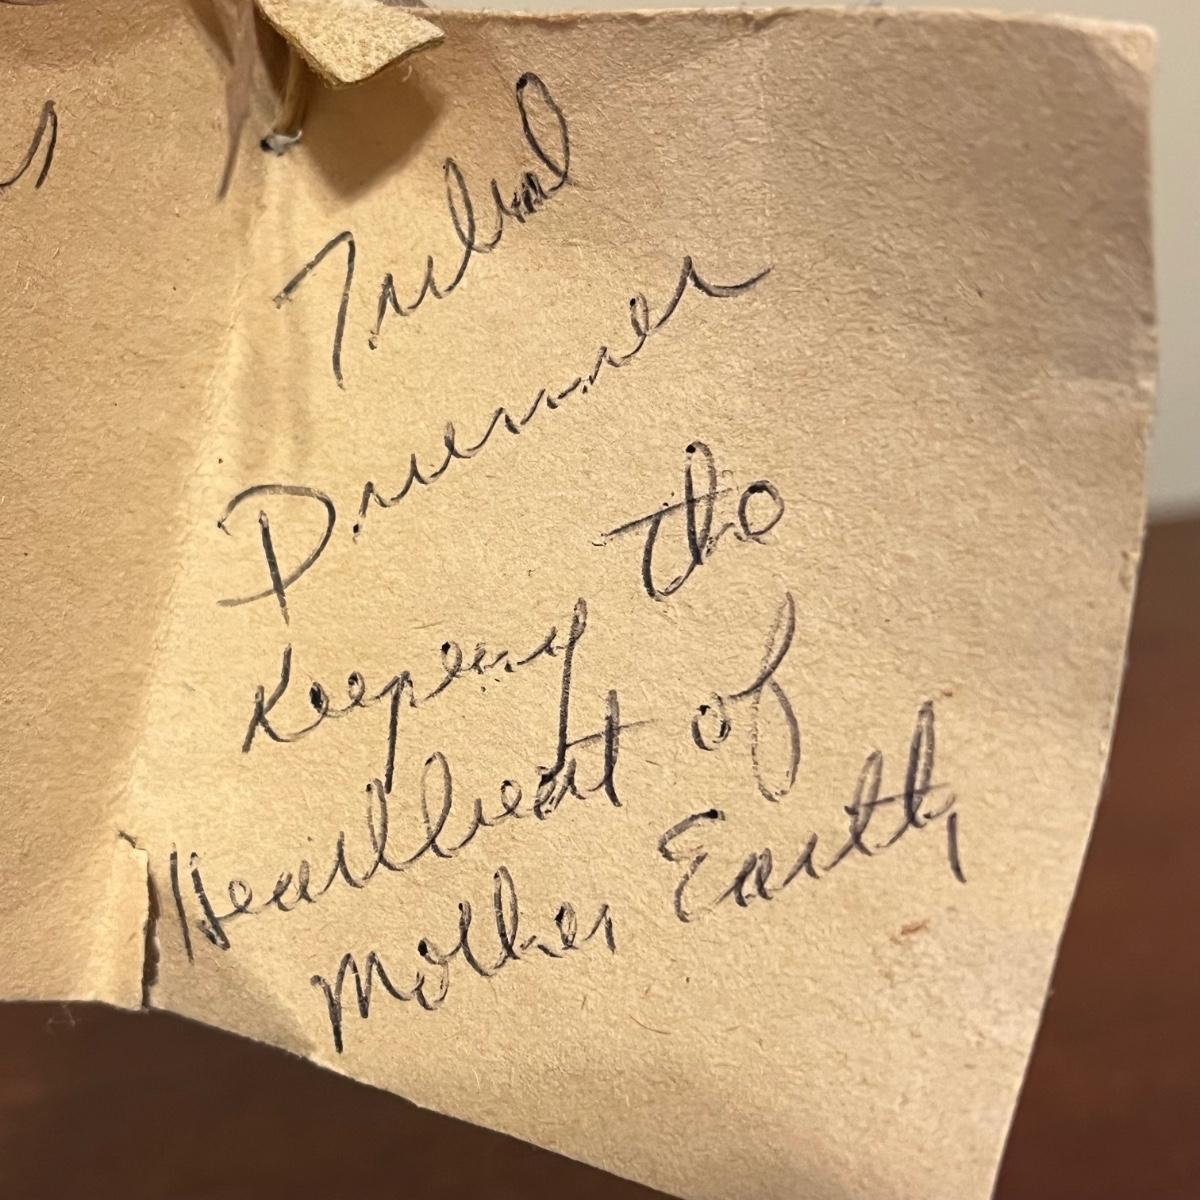 Tribal
Drummer
Keeping the
Heartbeat of
Mother Earth,